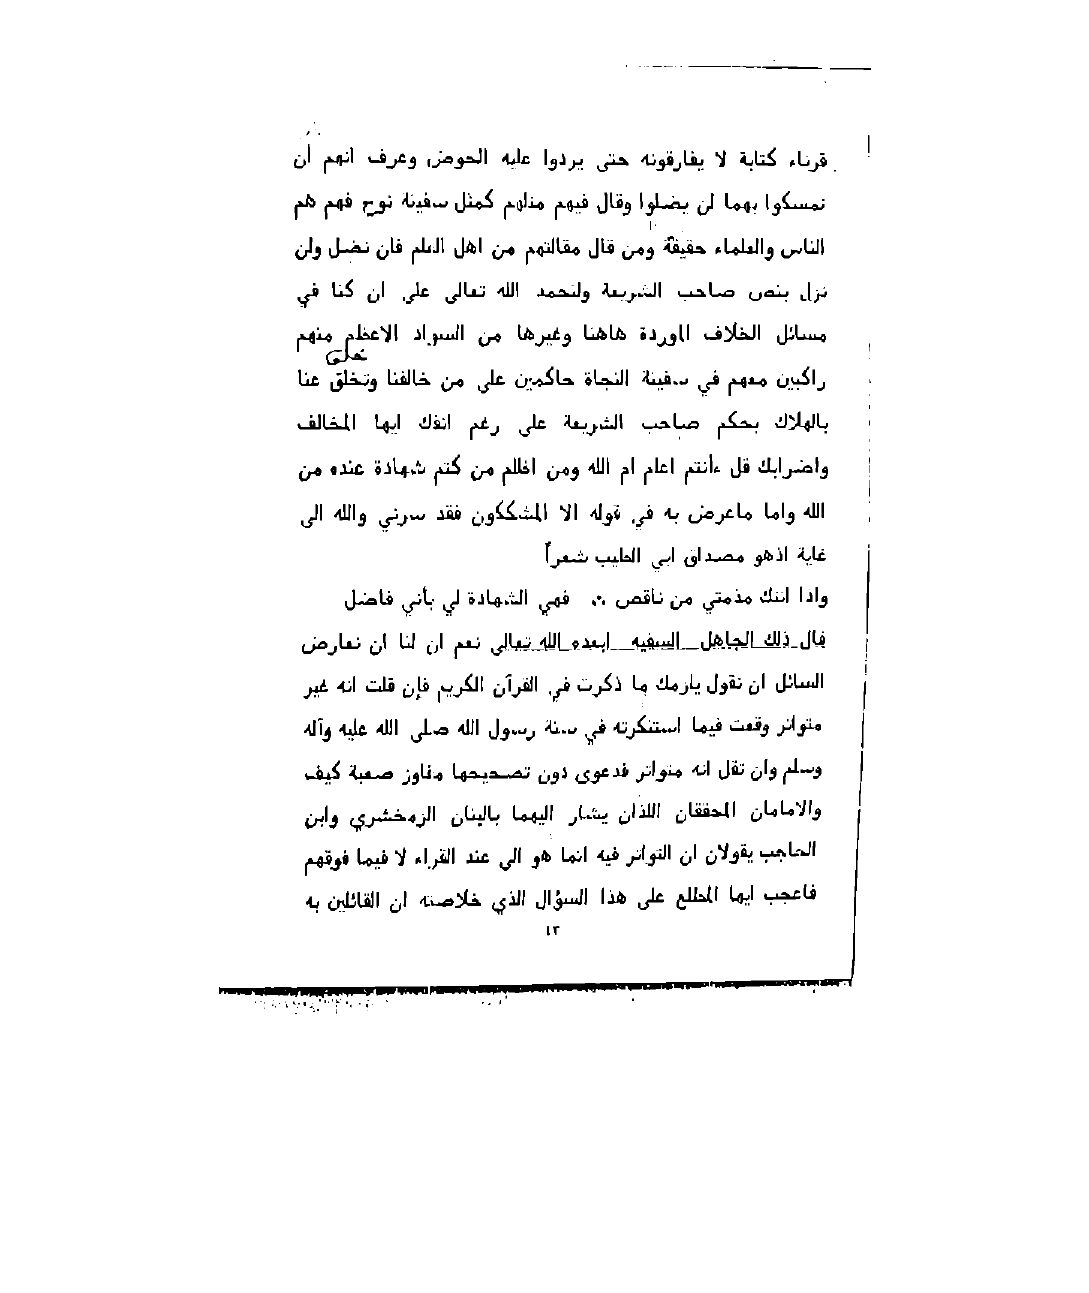 قرناء كتابة لا يفارقونه حتى يردوا عليه الحوض وعرف انهم أن
تمسكوا بهما لن يضلوا وقال فيهم مثلهم كمثل سفينة نوح فهم هم
الناس والعلماء حقيقة ومن قال مقالتهم من اهل العلم فان نضل ولن
نزل بنص صاحب الشريعة ولنحمد الله تعالى على ان كنا في
مسائل الخلاف الموردة هاهنا وغيرها من السواد الاعظم منهم
راكبين معهم في سفينة النجاة حاكمين على من خالفنا وتخلق عنا
بالهلاك بحكم صاحب الشريعة على رغم انفك ايها المخالف
واضرابك قل ءأنتم اعلم ام الله ومن اظلم من كتم شهادة عنده من
الله واما ماعرض به في قوله الا المشككون فقد سرني والله الى
غاية اذهو مصداق ابي الطيب شعراً
واذا اتتك مذمتي من ناقص ∴ فهي الشهادة لي بأني فاضل
قال ذلك الجاهل السفيه ابعده الله تعالى نعم ان لنا ان نعارض
السائل ان نقول يلزمك ما ذكرت في القرآن الكريم فإن قلت انه غير
متواتر وقعت فيما استنكرته في سنة رسول الله صلى الله عليه وآله
وسلم وان تقل انه متواتر فدعوى دون تصحيحها مفاوز صعبة كيف
والامامان المحققان اللذان يشار اليهما بالبنان الزمخشري وابن
الحاجب يقولان ان التواتر فيه انما هو الي عند القراء لا فيما فوقهم
فاعجب ايها المطلع على هذا السؤال الذي خلاصته ان القائلين به
١٢